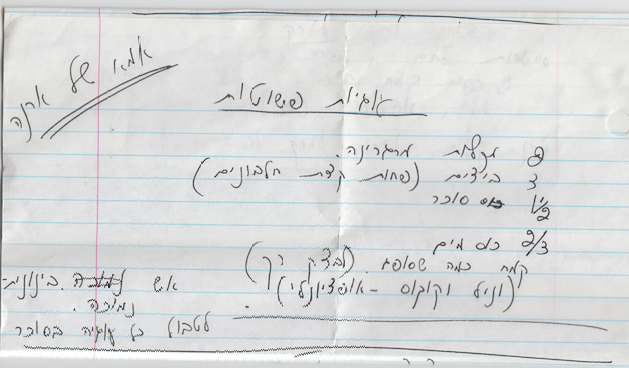 אמא של ארנה
עוגיות פשוטות
2 חבילות מרגרינה.
3 ביצים (פחות קצת חלבונים)
1 1/2 כוס סוכר
2/3 כוס מים
קמח כמה שסופג. (לבצק רך)
(וניל וקוקוס - אופציונלי)
אש נמוכה. בינונית-
נמוכה.
לטבול כל עוגיה בסוכר